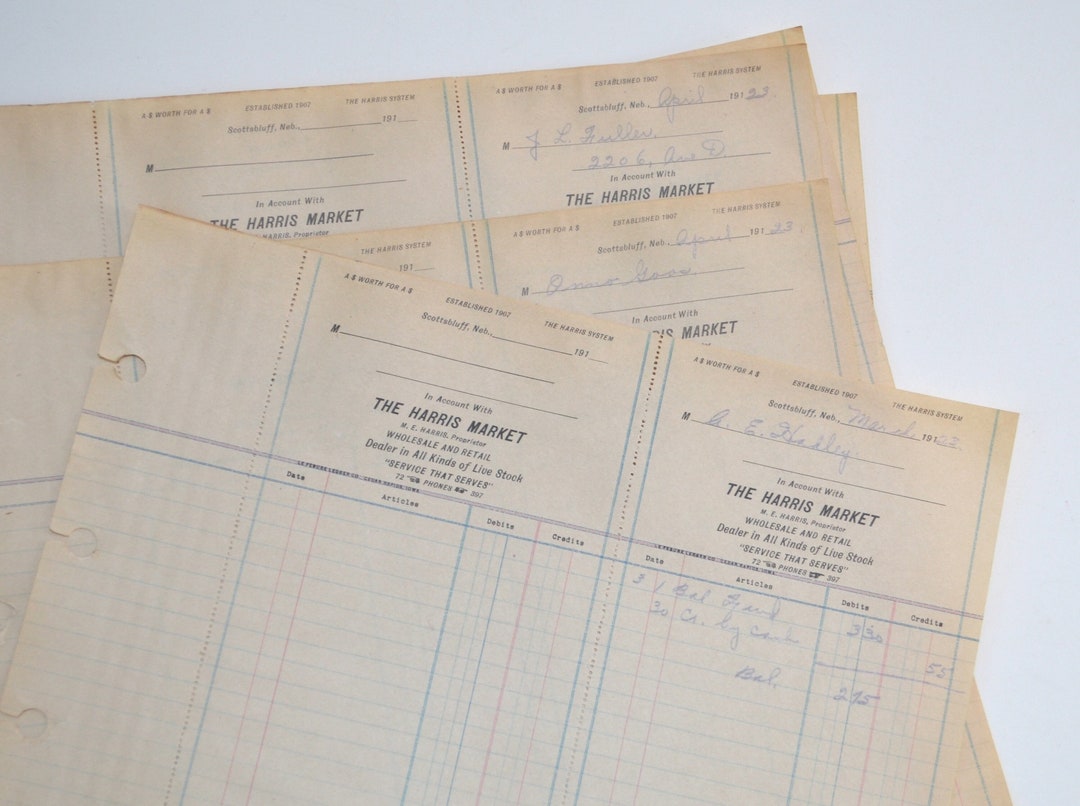 A $ WORTH FOR A $ ESTABLISHED 1907 THE HARRIS SYSTEM
Scottsbluff, Neb., 191
M
In Account With
THE HARRIS MARKET
M. E. HARRIS, Proprietor
A $ WORTH FOR A $ ESTABLISHED 1907 THE HARRIS SYSTEM
Scottsbluff, Neb., April 1923
M J. L. Fuller.
2206, Ave D.
In Account With
THE HARRIS MARKET
THE HARRIS SYSTEM
191
A $ WORTH FOR A $ ESTABLISHED 1907 THE HARRIS SYSTEM
Scottsbluff, Neb., April 1923
M
In Account With
HARRIS MARKET
A $ WORTH FOR A $ ESTABLISHED 1907 THE HARRIS SYSTEM
Scottsbluff, Neb., 191
M
In Account With
THE HARRIS MARKET
M. E. HARRIS, Proprietor
WHOLESALE AND RETAIL
Dealer in All Kinds of Live Stock
"SERVICE THAT SERVES"
72 PHONES 397
Date Articles Debits Credits
A $ WORTH FOR A $ ESTABLISHED 1907 THE HARRIS SYSTEM
Scottsbluff, Neb., March 1923.
M
In Account With
THE HARRIS MARKET
M. E. HARRIS, Proprietor
WHOLESALE AND RETAIL
Dealer in All Kinds of Live Stock
"SERVICE THAT SERVES"
72 PHONES 397
Date Articles Debits Credits
3 1 Bal 3 30
30 Cr. by Cash 55
Bal. 2 75